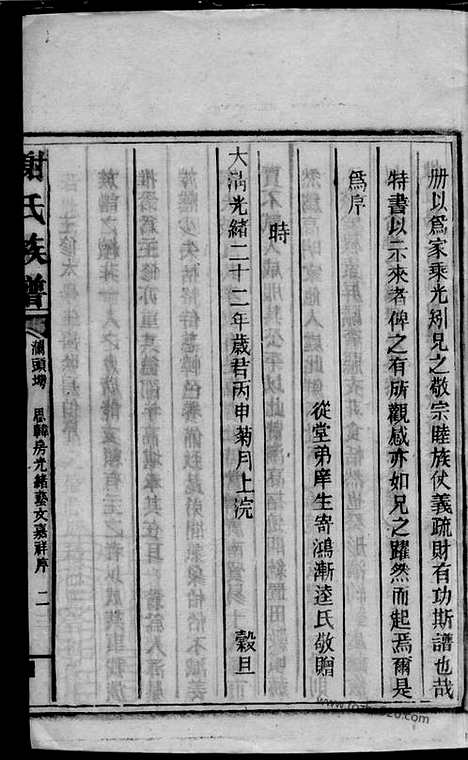 册以為家乘光矧兄之敬宗睦族仗義疏財有功斯譜也哉
特書以示來者俾之有所觀感亦如兄之躍然而起焉爾是
為序
從堂弟庠生寄鴻漸逵氏敬贈
時
大清光緒二十二年歲君丙申菊月上浣 穀旦
謝氏族譜 瀾頭塆 思 房光緒藝文嘉祥序 二